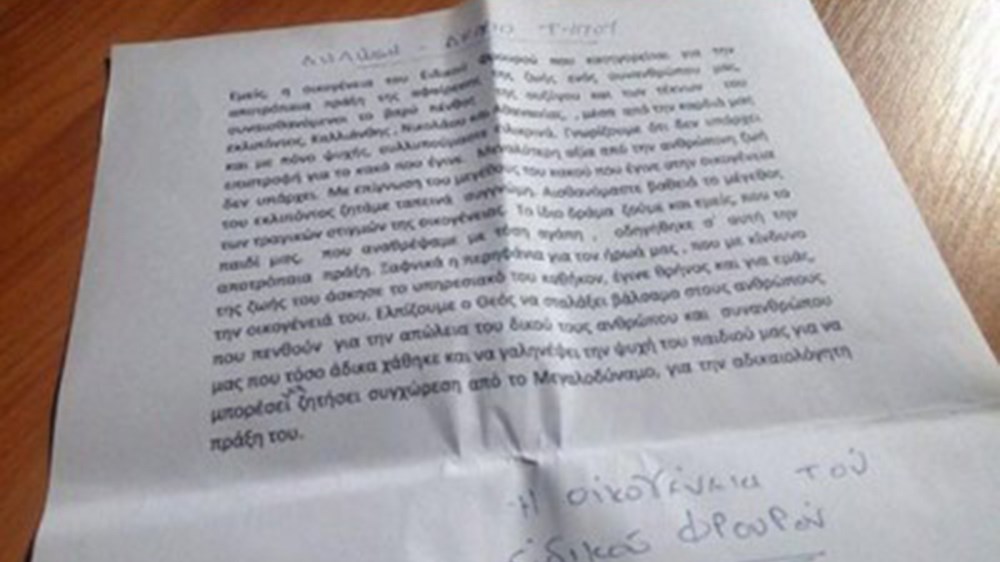 ΔΗΛΩΣΗ - ΔΕΛΤΙΟ ΤΥΠΟΥ
Εμείς, η οικογένεια του Ειδικού Φρουρού που κατηγορείται για την
αποτρόπαια πράξη της αφαίρεσης της ζωής ενός συνανθρώπου μας,
συναισθανόμενοι το βαρύ πένθος της συζύγου και των τέκνων του
εκλιπόντος, Καλλιάνθης, Νικολάου και , μέσα από την καρδιά μας
και με πόνο ψυχής, συλλυπούμαστε ειλικρινά. Γνωρίζουμε ότι δεν υπάρχει
επιστροφή για το κακό που έγινε. Μεγαλύτερη αξία από την ανθρώπινη ζωή
δεν υπάρχει. Με επίγνωση του μεγέθους του κακού που έγινε στην οικογένεια
του εκλιπόντος ζητάμε ταπεινά συγγνώμη. Αισθανόμαστε βαθειά το μέγεθος
των τραγικών στιγμών της οικογένειας. Το ίδιο δράμα ζούμε και εμείς, που το
παιδί μας, που αναθρέψαμε με τόση αγάπη , οδηγήθηκε σ' αυτή την
αποτρόπαια πράξη. Ξαφνικά η περηφάνια για τον ήρωά μας , που με κίνδυνο
της ζωής του άσκησε το υπηρεσιακό του καθήκον, έγινε θρήνος και για εμάς,
την οικογένειά του. Ελπίζουμε ο Θεός να σταλάξει βάλσαμο στους ανθρώπους
που πενθούν για την απώλεια του δικού τους ανθρώπου και συνανθρώπου
μας που τόσο άδικα χάθηκε και να γαληνέψει την ψυχή του παιδιού μας για να
μπορέσει να ζητήσει συγχώρεση από το Μεγαλοδύναμο, για την αδικαιολόγητη
πράξη του.
Η οικογένεια τού
ειδικού φρουρού